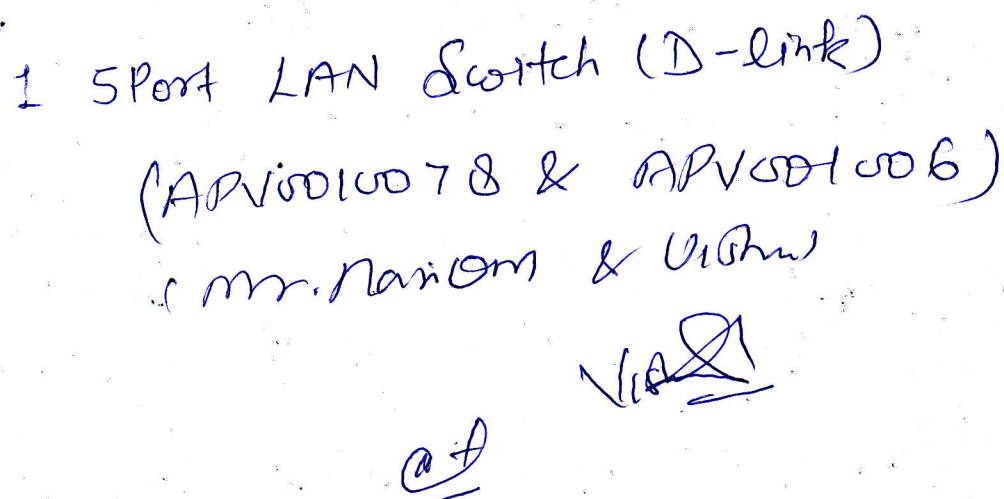 1 5Port LAN Switch (D-link)
(APV0010078 & APV001006)
(Mr. & Vishnu